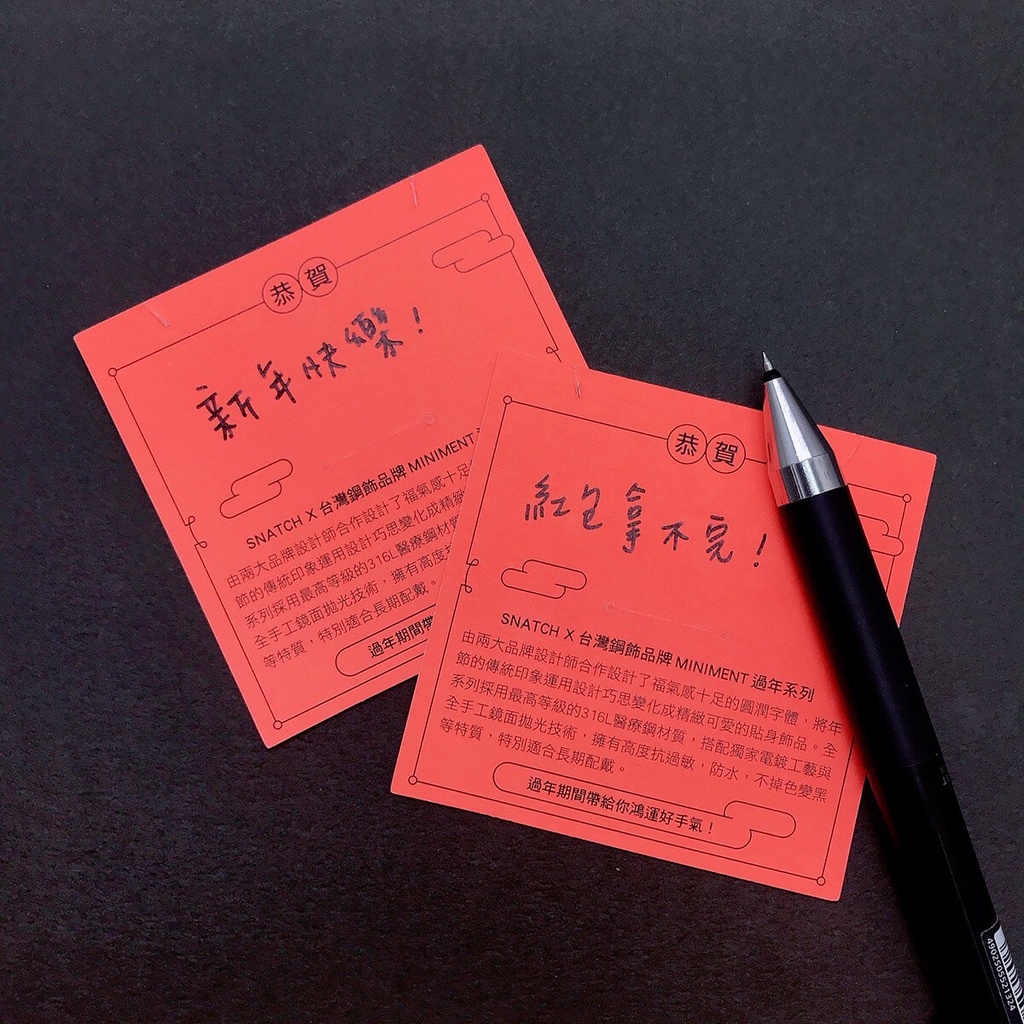 恭賀
新年快樂!
SNATCH X 台灣鋼飾品牌 MINIMENT
由兩大品牌設計師合作設計了福氣感十足
節的傳統印象運用設計巧思變化成精緻
系列採用最高等級的316L醫療鋼材質
全手工鏡面拋光技術,擁有高度
等特質,特別適合長期配戴。
過年期間帶
恭賀
紅包拿不完!
SNATCH X 台灣鋼飾品牌 MINIMENT 過年系列
由兩大品牌設計師合作設計了福氣感十足的圓潤字體,將年
節的傳統印象運用設計巧思變化成精緻可愛的貼身飾品。全
系列採用最高等級的316L醫療鋼材質,搭配獨家電鍍工藝與
全手工鏡面拋光技術,擁有高度抗過敏,防水,不掉色變黑
等特質,特別適合長期配戴。
過年期間帶給你鴻運好手氣!
4902505521324